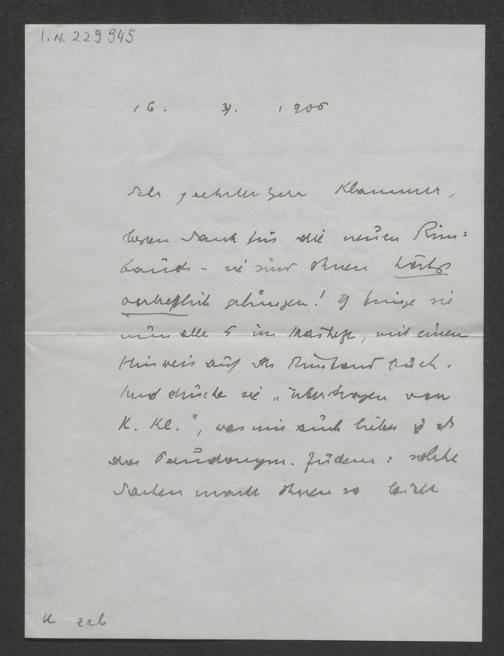 I.N. 229945
16. V. 1906
Sehr geehrter Herr Klammer,
besten Dank für die neuen Rim=
bauds – sie sind Ihnen höchst
vortrefflich gelungen! Ich bringe sie
nun alle 5 im Maiheft, mit einem
Hinweis auf das Rimbaud buch.
Und drucke sie „übertragen von
K. Kl.", was mir auch lieber ist als
das Pseudonym. Zudem: solche
Sachen macht Ihnen so leicht